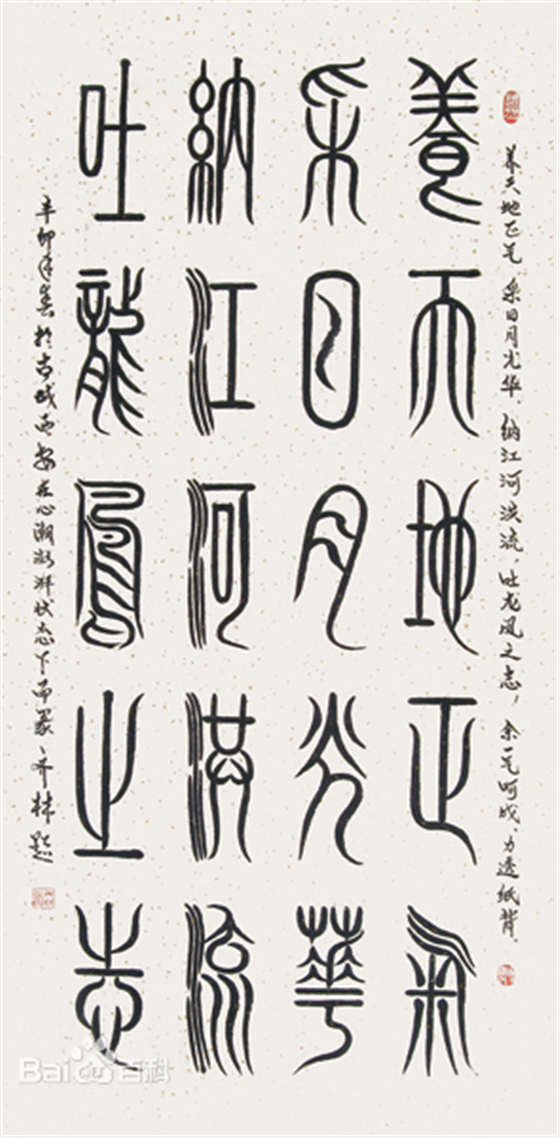 养天地正气，采日月光华，纳江河洪流，吐龙凤之志，余一气呵成、力透纸背．
養天地正氣
采日月光華
納江河洪流
吐龍鳳之志
辛卯年春於古城西安在心潮澎湃状态下而篆 林题
Bai du 百科